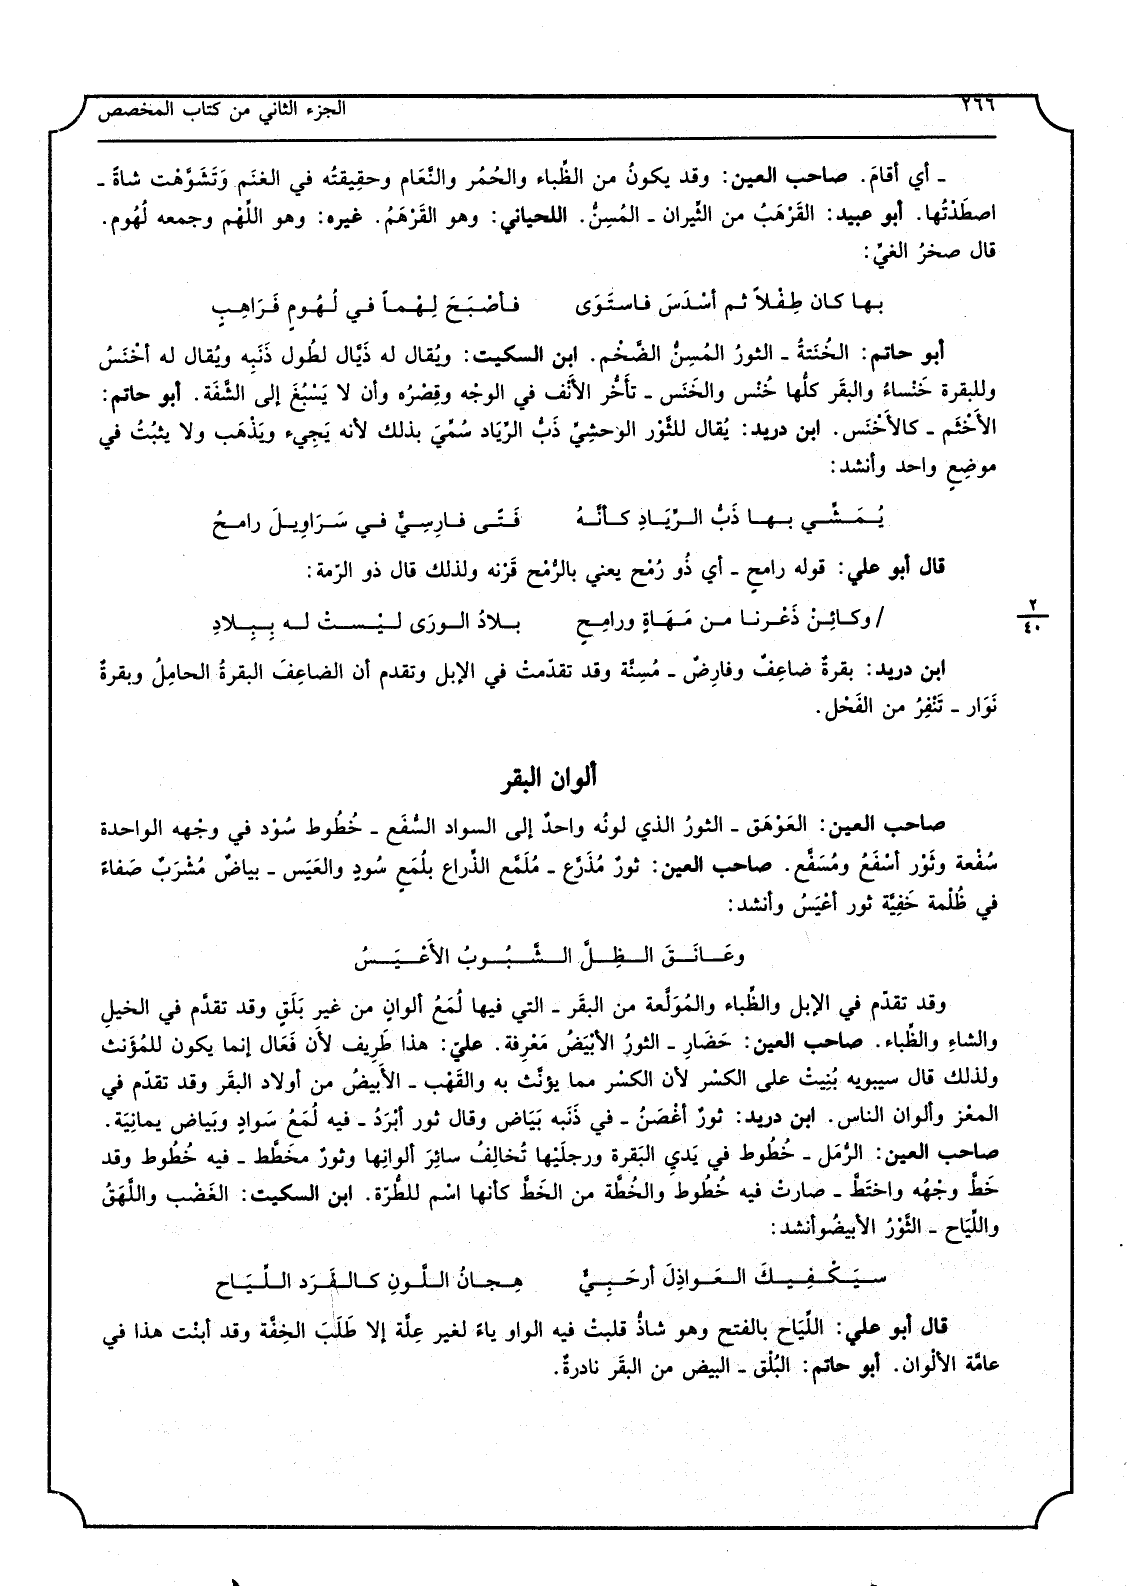 ٢٦٦ الجزء الثاني من كتاب المخصص
ـ أي أقامَ. صاحب العين: وقد يكونُ من الظِّباء والحُمُر والنَّعَام وحقِيقتُه في الغنَم وَتَشَوَّهْت شاةً ـ
اصطَدْتُها. أبو عبيد: القَرْهَبُ من الثِّيران ـ المُسِنُّ. اللحياني: وهو القَرْهَمُ. غيره: وهو اللِّهْم وجمعه لُهُوم.
قال صخرُ الغيِّ:
بها كان طِفْلاً ثم أسْدَسَ فاستَوَى فأصْبَحَ لِهْماً في لُهُومٍ قَرَاهِبٍ
أبو حاتم: الخُنَتةُ ـ الثورُ المُسِنُّ الضَّخْم. ابن السكيت: ويُقال له ذَيَّال لطُول ذَنَبِه ويُقال له أخْنَسُ
وللبقرة خَنْساءُ والبقَر كلُّها خُنْس والخَنَس ـ تأخُّر الأَنْف في الوجْه وقِصْرُه وأن لا يَسْبُغَ إلى الشَّفَة. أبو حاتم:
الأَخْثَم ـ كالأَخْنَس. ابن دريد: يُقال للثَّوْر الوحشِيِّ ذَبُّ الرِّيَاد سُمِّيَ بذلك لأنه يَجِيء ويَذْهَب ولا يثبُتُ في
موضِعٍ واحد وأنشد:
يُمَشِّي بها ذَبُّ الرِّيَادِ كأنَّهُ فَتًى فارِسِيٌّ في سَرَاوِيلَ رامحُ
قال أبو علي: قوله رامحٍ ـ أي ذُو رُمْح يعني بالرُّمْح قَرْنه ولذلك قال ذو الرّمة:
/ وكائِنْ ذَعْرنا من مَهَاةٍ ورامِحٍ بلادُ الورَى ليْستْ له بِبِلادِ
٢
٤٠
ابن دريد: بقرةٌ ضاعِفٌ وفارِضٌ ـ مُسِنَّة وقد تقدّمتْ في الإبل وتقدم أن الضاعِفَ البقرةُ الحامِلُ وبقرةٌ
نَوَار ـ تَنْفِرُ من الفَحْل.
ألوان البقر
صاحب العين: العَوْهَق ـ الثورُ الذي لونُه واحدٌ إلى السواد السُّفَع ـ خُطُوط سُوْد في وجْهه الواحدة
سُفْعة وثَوْر أسْفَعُ ومُسَفَّع. صاحب العين: ثورٌ مُذَرَّع ـ مُلَمَّع الذِّراع بلُمَعٍ سُودٍ والعَيَس ـ بياضٌ مُشْرَبٌ صَفاءً
في ظُلْمة خَفِيَّة ثور أعْيَسُ وأنشد:
وعَانَقَ الظِلَّ الشَّبُوبُ الأَعْيَسُ
وقد تقدّم في الإبل والظِّباء والمُوَلَّعة من البقَر ـ التي فيها لُمَعُ ألوانٍ من غير بَلَقٍ وقد تقدَّم في الخيلِ
والشاءِ والظِّباء. صاحب العين: حَضَارِ ـ الثورُ الأبْيَضُ مَعْرِفة. عليّ: هذا طَرِيف لأن فَعَال إنما يكون للمُؤنث
ولذلك قال سيبويه بُنِيتْ على الكسْر لأن الكسْر مما يؤنَّث به والقَهْب ـ الأَبيضُ من أولاد البقَر وقد تقدّم في
المعْز وألوان الناس. ابن دريد: ثورٌ أغْصَنُ ـ في ذَنَبه بَيَاض وقال ثور أبْرَدُ ـ فيه لُمَعُ سَوادٍ وبَياض يمانِيَة.
صاحب العين: الرُّمَل ـ خُطُوط في يَديِ البَقرة ورجلَيْها تُخالِفُ سائِرَ ألوانِها وثورٌ مخَطَّط ـ فيه خُطُوط وقد
خَطَّ وجْهُه واختَطَّ ـ صارتْ فيه خُطُوط والخُطَّة من الخَطَّ كأنها اسْم للطُّرّة. ابن السكيت: الغَضْب واللَّهَقُ
واللِّيَاح ـ الثَّوْرُ الأبيضُوأنشد:
سيَكْفِيكَ العَواذِلَ أرحَبِيٌّ هِجانُ اللَّونِ كالفَرَد اللِّيَاح
قال أبو علي: اللِّيَاح بالفتح وهو شاذٌّ قلبتْ فيه الواو ياءً لغير عِلَّة إلا طَلَبَ الخِفَّة وقد أبنْت هذا في
عامَّة الألْوان. أبو حاتم: البُلْق ـ البيض من البقَر نادرةٌ.